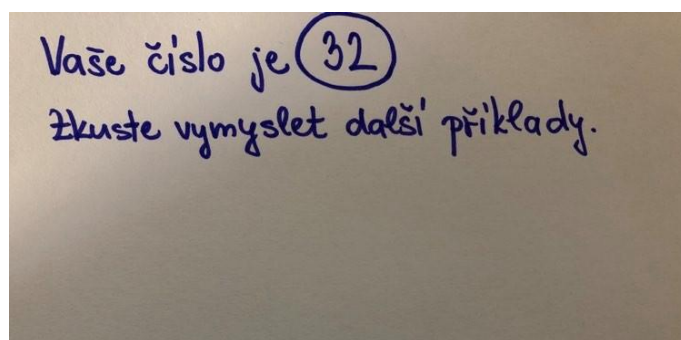 Vaše číslo je 32
Zkuste vymyslet další příklady.